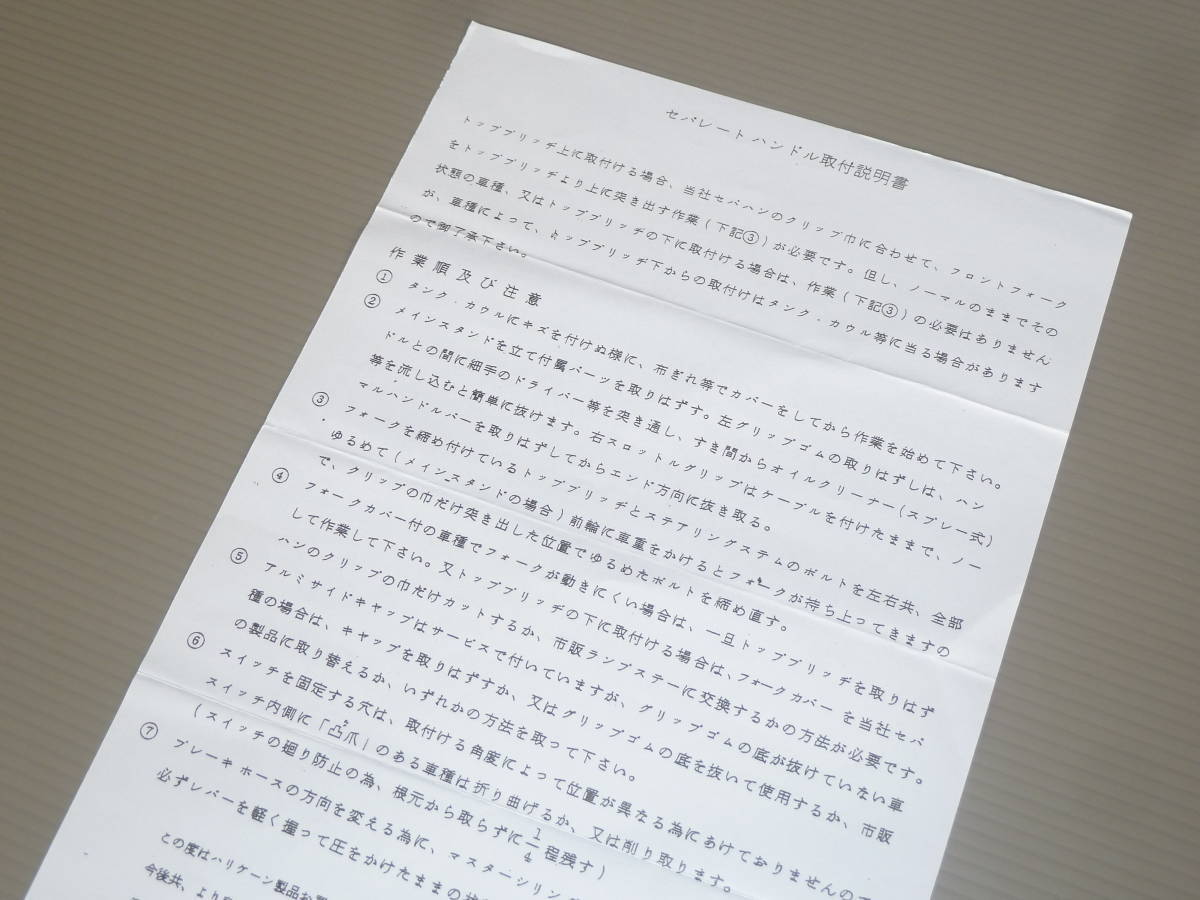 セパレート ハンドル取付説明書
トップブリッヂ上に取付ける場合、当社セパハンのクリップ巾に合わせて、フロントフォーク
をトップブリッヂより上に突き出す作業（下記③）が必要です。但し、ノーマルのままでその
状態の車種、又はトップブリッヂの下に取付ける場合は、作業（下記③）の必要はありません
が、車種によって、トップブリッヂ下からの取付けはタンク・カウル等に当る場合があります
ので御了承下さい。
作業順及び注意
① タンク・カウルにキズを付けぬ様に、布ぎれ等でカバーをしてから作業を始めて下さい。
② メインスタンドを立て付属パーツを取りはずす。左グリップゴムの取りはずしは、ハン
ドルとの間に細手のドライバー等を突き通し、すき間からオイルクリーナー（スプレー式）
等を流し込むと簡単に抜けます。右スロットルグリップはケーブルを付けたままで、ノー
マルハンドルバーを取りはずしてからエンド方向に抜き取る。
③ フォークを締め付けているトップブリッヂとステアリングステムのボルトを左右共、全部
ゆるめて（メインスタンドの場合）前輪に車重をかけるとフォークが持ち上ってきますの
で、クリップの巾だけ突き出した位置でゆるめたボルトを締め直す。
④ フォークカバー付の車種でフォークが動きにくい場合は、一旦トップブリッヂを取りはず
して作業して下さい。又トップブリッヂの下に取付ける場合は、フォークカバー を当社セパ
ハンのクリップの巾だけカットするか、市販ランプステーに交換するかの方法が必要です。
⑤ アルミサイドキャップはサービスで付いていますが、グリップゴムの底が抜けていない車
種の場合は、キャップを取りはずすか、又はグリップゴムの底を抜いて使用するか、市販
の製品に取り替えるか、いずれかの方法を取って下さい。
⑥ スイッチを固定する穴は、取付ける角度によって位置が異なる為にあけておりませんので
スイッチ内側に「凸爪」のある車種は折り曲げるか、又は削り取ります。
（スイッチの廻り防止の為、根元から取らずに1/4程残す）
⑦ ブレーキ ホースの方向を変える為に、マスターシリン
必ずレバーを軽く握って圧をかけたままの状
この度はハリケーン製品お買
今後共、より